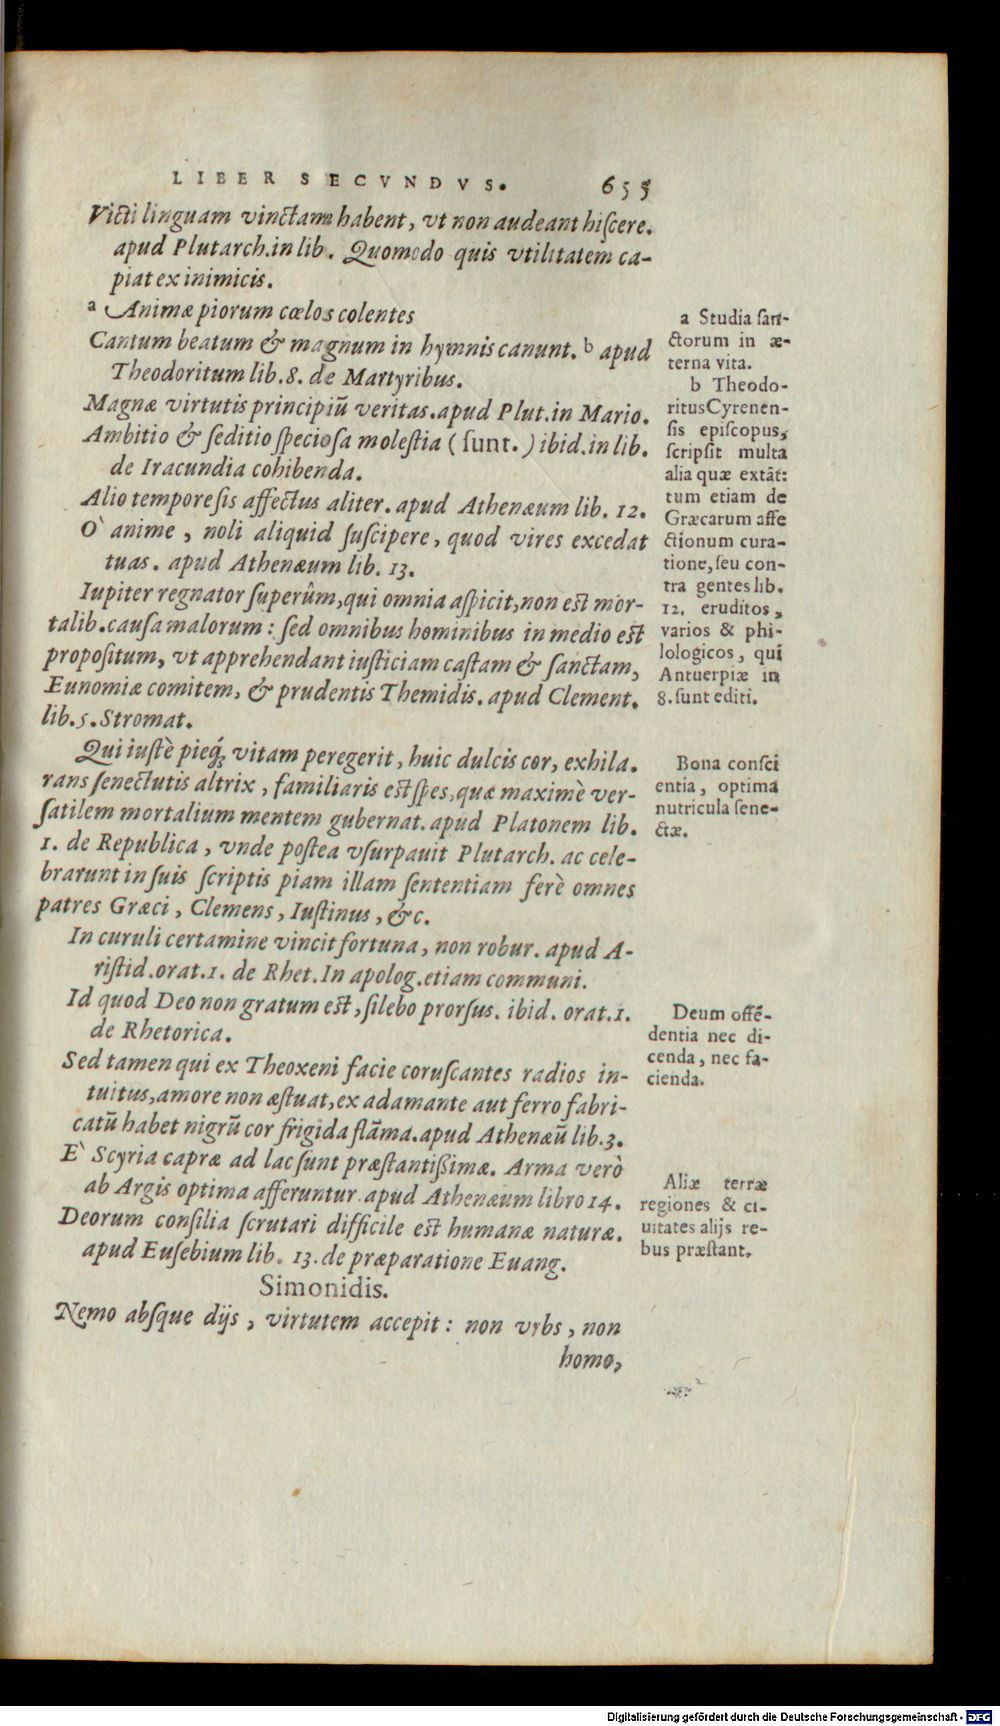 LIBER SECVNDVS. 655
Victi linguam vinctam habent, vt non audeant hiſcere.
apud Plutarch.in lib. Quomodo quis vtilitatem ca-
piat ex inimicis.
a Animæ piorum cœlos colentes
Cantum beatum & magnum in hymnis canunt. b apud
Theodoritum lib. 8. de Martyribus.
Magnæ virtutis principiũ veritas.apud Plut.in Mario.
Ambitio & ſeditio ſpecioſa moleſtia (ſunt.) ibid.in lib.
de Iracundia cohibenda.
Alio tempore ſis affectus aliter. apud Athenæum lib. 12.
O` anime, noli aliquid ſuſcipere, quod vires excedat
tuas. apud Athenæum lib. 13.
Iupiter regnator ſuperûm,qui omnia aſpicit,non eſt mor-
talib.cauſa malorum: ſed omnibus hominibus in medio eſt
propoſitum, vt apprehendant iuſticiam caſtam & ſanctam,
Eunomiæ comitem, & prudentis Themidis. apud Clement.
lib.5.Stromat.
Qui iuſtè pieq́; vitam peregerit, huic dulcis cor, exhila.
rans ſenectutis altrix, familiaris eſt ſpes,quæ maximè ver-
ſatilem mortalium mentem gubernat. apud Platonem lib.
1. de Republica, vnde poſtea vſurpauit Plutarch. ac cele-
brarunt in ſuis ſcriptis piam illam ſententiam ferè omnes
patres Græci, Clemens, Iuſtinus, &c.
In curuli certamine vincit fortuna, non robur. apud A-
riſtid.orat.1. de Rhet.In apolog.etiam communi.
Id quod Deo non gratum eſt, ſilebo prorſus. ibid. orat.1.
de Rhetorica.
Sed tamen qui ex Theoxeni facie coruſcantes radios in-
tuitus,amore non æſtuat,ex adamante aut ferro fabri-
catũ habet nigrũ cor frigida flãma.apud Athenæũ lib.3.
E` Scyria capræ ad lac ſunt præſtantißimæ. Arma verò
ab Argis optima afferuntur.apud Athenæum libro 14.
Deorum conſilia ſcrutari difficile eſt humanæ naturæ.
apud Euſebium lib. 13. de præparatione Euang.
Simonidis.
Nemo abſque dijs, virtutem accepit: non vrbs, non
homo,
a Studia ſan-
ctorum in æ-
terna vita.
b Theodo-
ritus Cyrenen-
ſis epiſcopus,
ſcripſit multa
alia quæ extãt:
tum etiam de
Græcarum affe
ctionum cura-
tione, ſeu con-
tra gentes lib.
12. eruditos,
varios & phi-
lologicos, qui
Antuerpiæ in
8. ſunt editi.
Bona conſci
entia, optima
nutricula ſene-
ctæ.
Deum offẽ-
dentia nec di-
cenda, nec fa-
cienda.
Aliæ terræ
regiones & ci-
uitates alijs re-
bus præſtant.
Digitalisierung gefördert durch die Deutsche Forschungsgemeinschaft - DFG